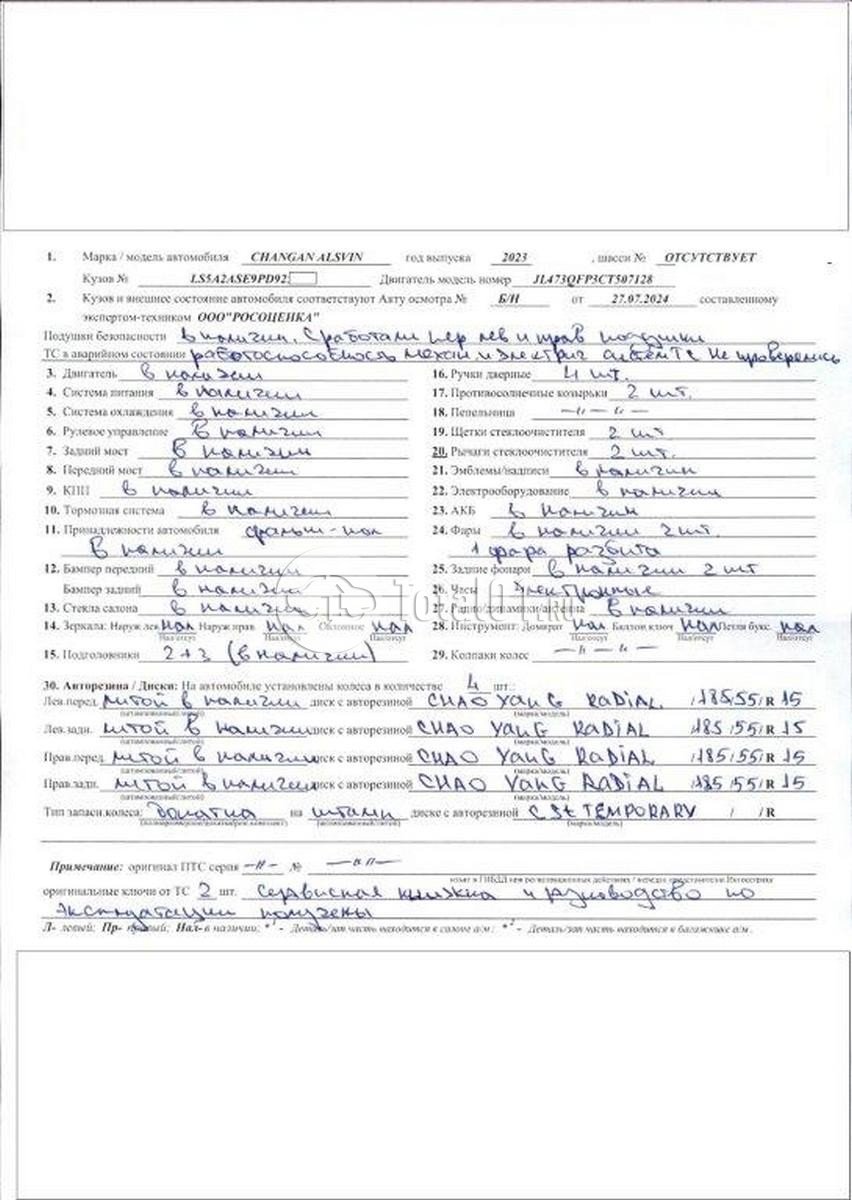 1. Марка / модель автомобиля CHANGAN ALSVIN год выпуска 2023 , шасси № ОТСУТСТВУЕТ
Кузов № LS5A2ASE9PD92 Двигатель модель номер JL473QFP3CT507128
2. Кузов и внешнее состояние автомобиля соответствуют Акту осмотра № Б/Н от 27.07.2024 составленному
экспертом-техником ООО"РОСОЦЕНКА"
Подушки безопасности в наличии. Сработали пер лев и прав подушки
ТС в аварийном состоянии работоспособность механ и электрич систем ТС не проверялись
3. Двигатель в наличии
4. Система питания в наличии
5. Система охлаждения в наличии
6. Рулевое управление в наличии
7. Задний мост в наличии
8. Передний мост в наличии
9. КПП в наличии
10. Тормозная система в наличии
11. Принадлежности автомобиля
в наличии
12. Бампер передний в наличии
Бампер задний в наличии
13. Стекла салона в наличии
14. Зеркала: Наруж лев нал Наруж прав нал Обзорное нал
Нал/отсут Нал/отсут Нал/отсут
15. Подголовники 2+3 (в наличии)
16. Ручки дверные 4 шт.
17. Противосолнечные козырьки 2 шт.
18. Пепельница —"—"—
19. Щетки стеклоочистителя 2 шт
20. Рычаги стеклоочистителя 2 шт.
21. Эмблемы/надписи в наличии
22. Электрооборудование в наличии
23. АКБ в наличии
24. Фары в наличии 2 шт.
1 фара разбита
25. Задние фонари в наличии 2 шт
26. Часы электронные
27. Радио/динамики/антенна в наличии
28. Инструмент: Домкрат нал Баллон ключ нал Петля букс. нал
Нал/отсут Нал/отсут Нал/отсут
29. Колпаки колес —"—"—
Total01.ru
30. Авторезина / Диски: На автомобиле установлены колеса в количестве 4 шт.:
Лев.перед. литой в наличии диск с авторезиной CHAO YANG RADIAL /185/55/ R 15
(штампованный/литой) (марка/модель)
Лев.задн. литой в наличии диск с авторезиной CHAO YANG RADIAL /185/55/ R 15
(штампованный/литой) (марка/модель)
Прав.перед литой в наличии диск с авторезиной CHAO YANG RADIAL /185/55/ R 15
(штампованный/литой) (марка/модель)
Прав.задн. литой в наличии диск с авторезиной CHAO YANG RADIAL /185/55/ R 15
(штампованный/литой) (марка/модель)
Тип запасн.колеса: докатка на штамп диске с авторезиной CST TEMPORARY / / R
(штампованный/литой) (марка/модель)
Примечание: оригинал ПТС серия —"— № —"—
оригинальные ключи от ТС 2 шт. сервисная книжка и руководство по
эксплуатации получены
Л- левый; Пр- правый; Нал- в наличии; *¹ - Деталь/зап часть находится в салоне а/м; *² - Деталь/зап часть находится в багажнике а/м.